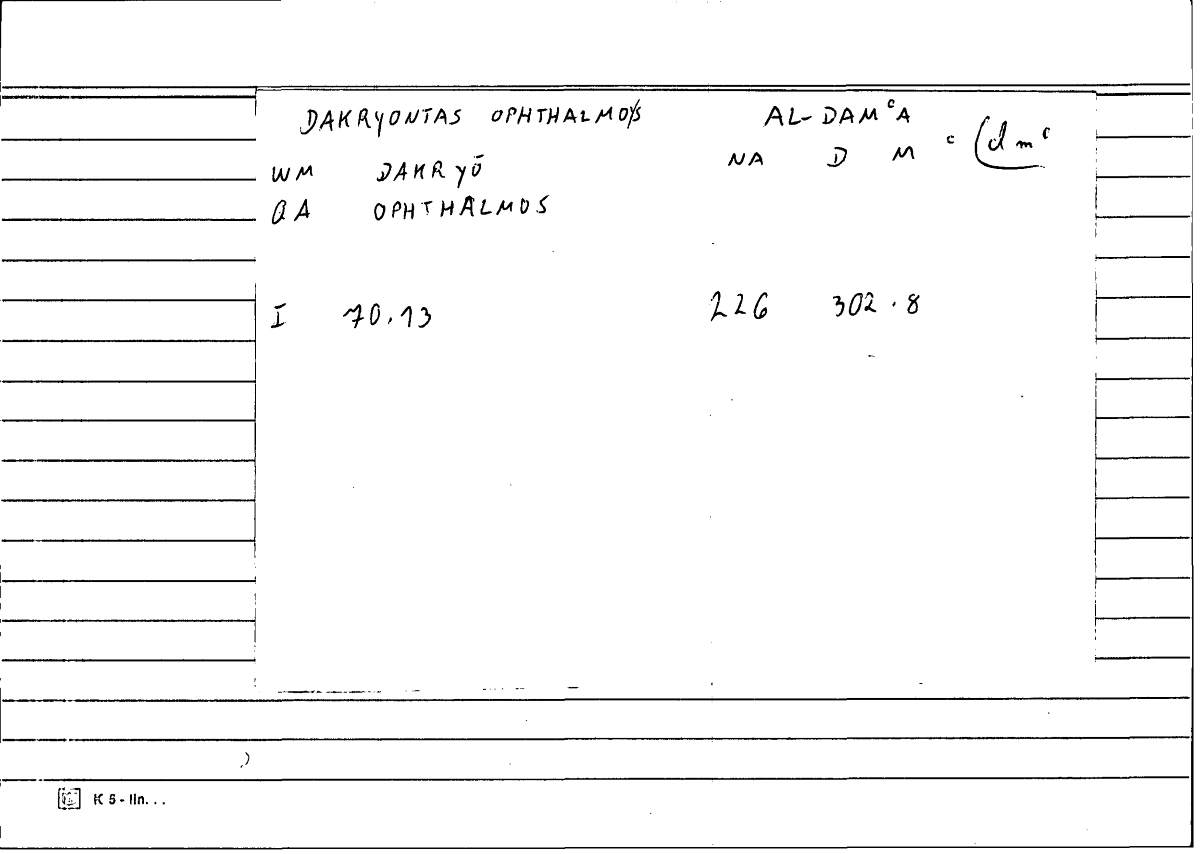 DAKRYONTAS OPHTHALMOYS AL-DAMᶜA
WM DAKRYŌ NA D M ᶜ (dmᶜ
QA OPHTHALMOS
I 70.13 226 302.8
K 5 - lin...